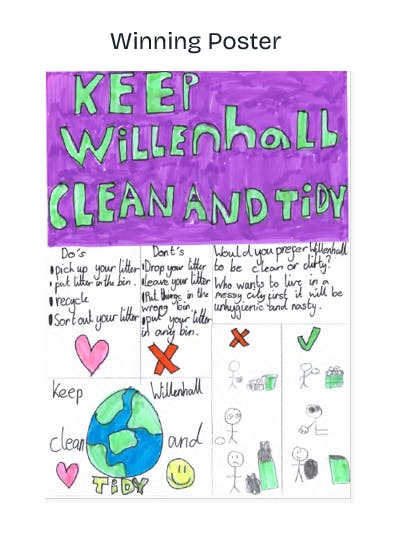 Winning Poster
KEEP
WiLLEnhall
CLEAN AND TiDY
Do's
pick up your litter
put litter in the bin.
recycle
Sort out your litter
Dont's
Drop your litter
leave your litter
Put things in the
wrong bin.
put your litter
in any bin.
Would you prefer Willenhall
to be clean or dirty?
Who wants to live in a
messy city first it will be
unhygienic and nasty.
Keep Willenhall
clean and
TiDY